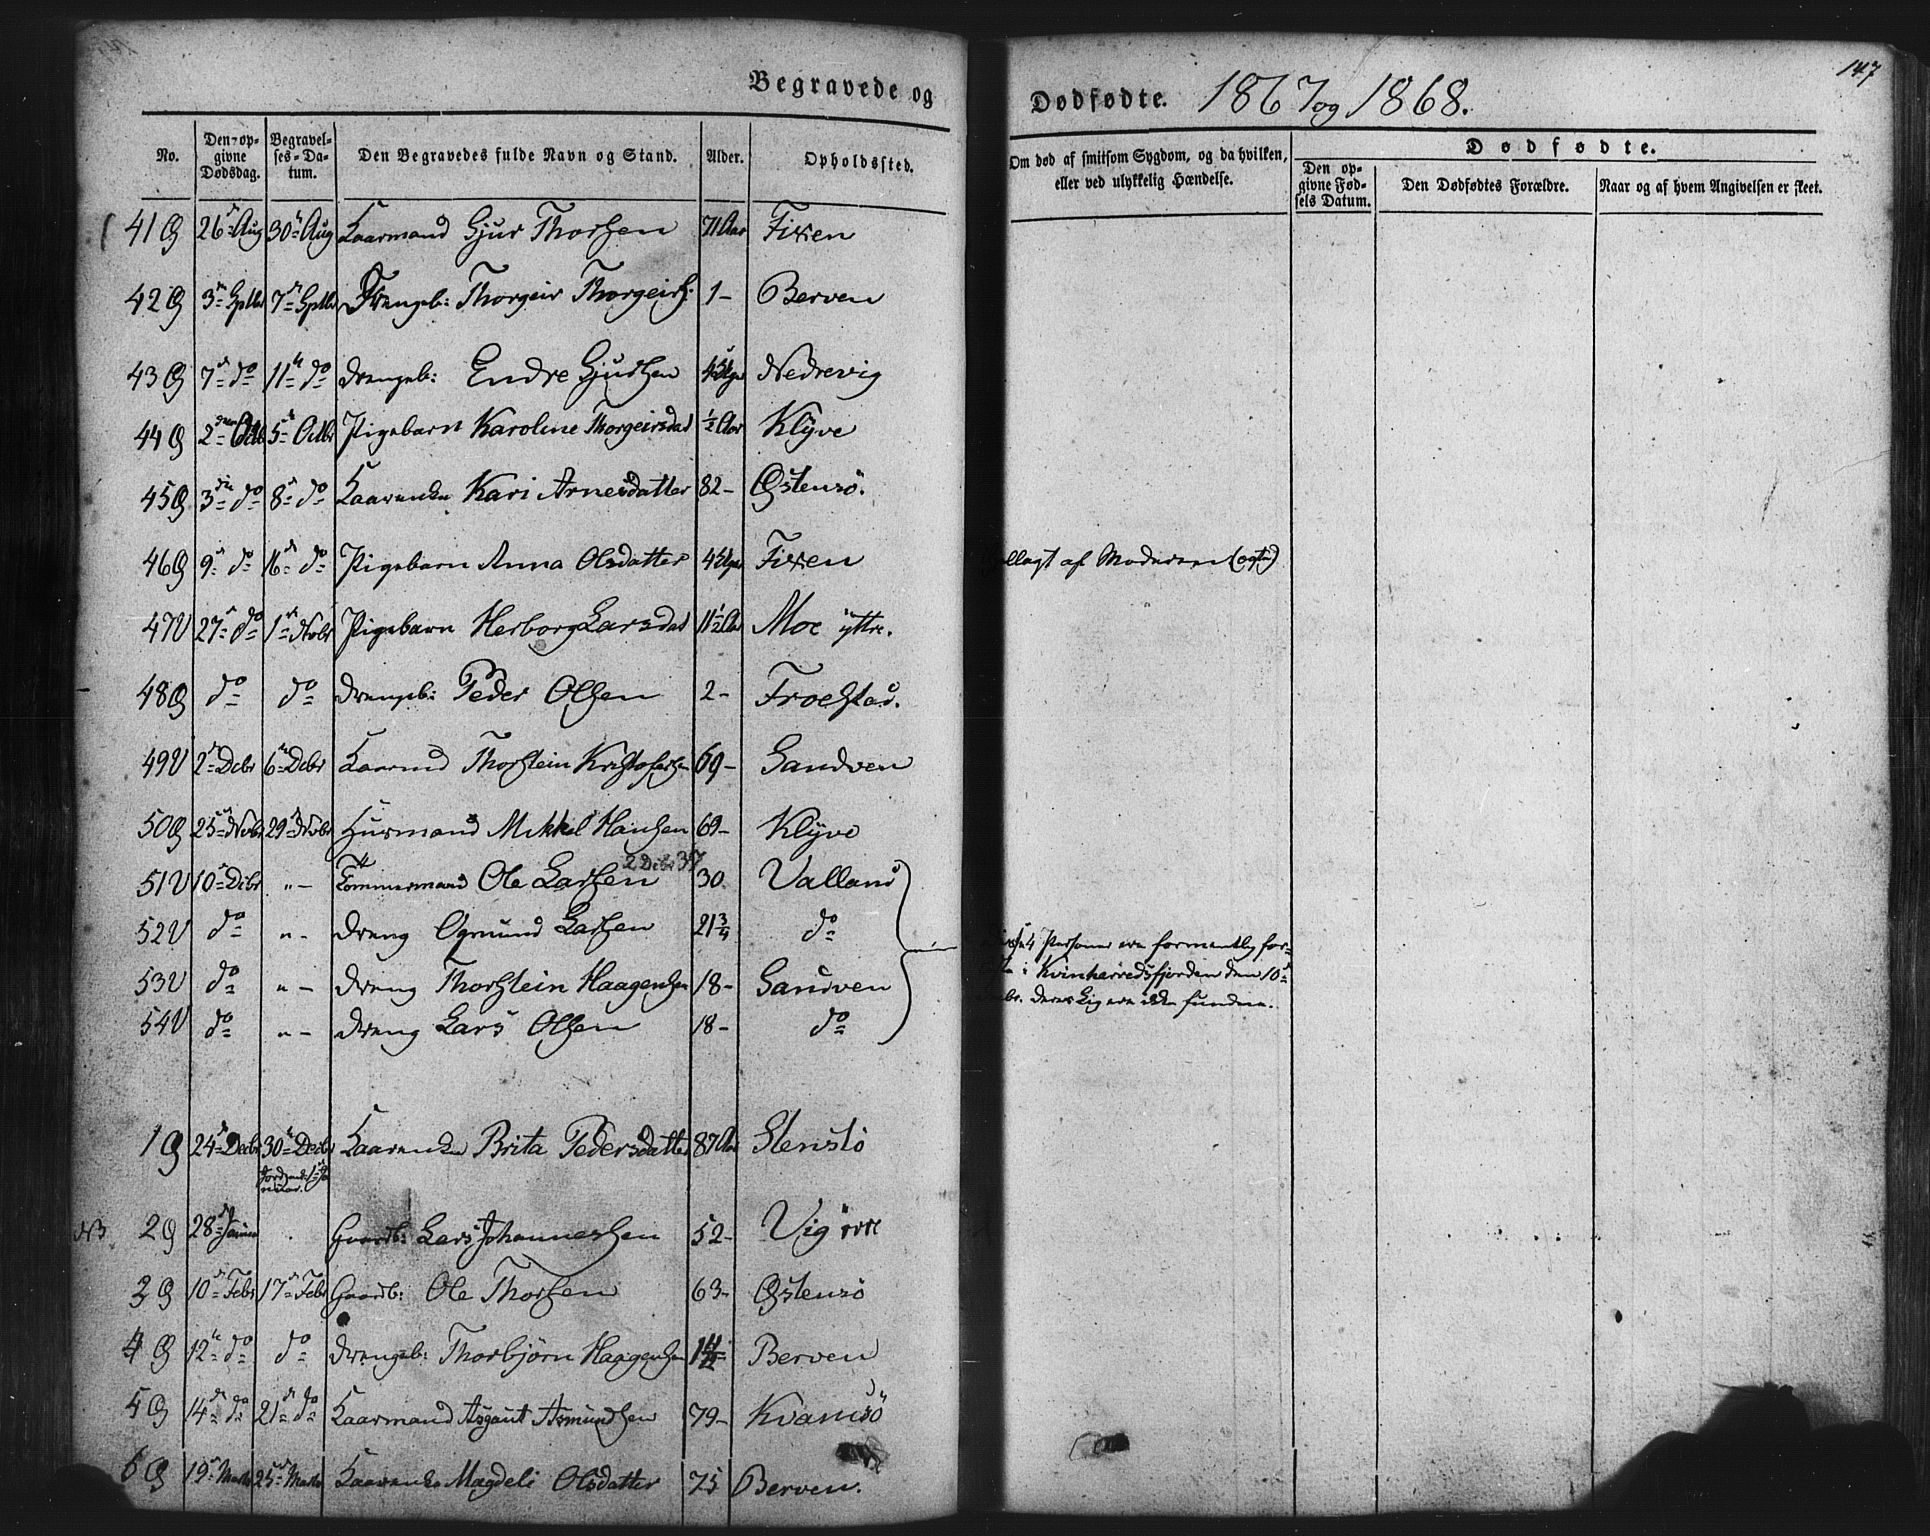 147
Begravede og Dødfødte. 1867 og 1868.
No. Den op-givne Dødsdag. Begravel-ses-Da-tum. Den Begravedes fulde Navn og Stand. Alder. Opholdssted. Om død af smitsom Sygdom, og da hvilken, eller ved ulykkelig Hændelse. Dødfødte.
Den op-givne Fød-sels Datum. Den Dødfødtes Forældre. Naar og af hvem Angivelsen er skeet.
41 Ø 26de Aug 30te Aug Kaarmand Gjur Thorsen 71 Aar Fixen
42 Ø 3de Sptbr 7de Sptbr Drengeb: Thorgeir Thorgeirs. 1 - Berven
43 Ø 7de do 11te do Drengeb: Endre Gjursen Nedrevig
44 Ø 2den Octb 5te Octbr Pigebarn Karoline Thorgeirsdat ½ Aar Klÿve
45 Ø 3die do 8de do Kaarenke Kari Arnesdatter 82 - Østensö.
46 Ø 9de do 16de do Pigebarn Anna Olsdatter 4 Uger Fixen ihjellagt af Moderen (ægte)
47 V 27de do 1ste Novbr Pigebarn Herborg Larsdat 11½ Aar Moe ÿttre.
48 Ø do do Drengeb: Peder Olsen 2 - Froestad.
49 V 2den Dcbr 6te Dcbr Kaarmd Thorstein Kristofersen 69 - Sandven
50 Ø 25de Novbr 29de Novbr Husmand Mikkel Hansen 69 - Klÿve
2 Decbr 37
51 V 10de Dcbr " - Tömmermand Ole Larsen 30 Valland
52 V do " - Dreng Ogmund Larsen 21¾ do Disse 4 Personer ere formentlig for-
53 V do " - Dreng Thorstein Haagensen 18 - Sandven i Kvinherredsfjorden den 10de
54 V do " - Dreng Lars Olsen 18 - do Decbr. deres Lig ere ikke fundne.
1 Ø 24de Decbr 30te Decbr Kaarenke Brita Pedersdatter 87 Aar Stenstö
NB 2 Ø 28de Januar Gaardb: Lars Johannessen 52 - Vig övre
3 Ø 10de Febr 17de Febr Gaardb: Ole Thorsen 63 - Östensö
4 Ø 12te do do Drengeb: Thorbjörn Haagensen Berven
5 Ø 14de do 21de do Kaarmand Asgaut Asmundsen 79 - Kvamsö
6 Ø 19de Marts 25de Marts Kaarenke Magdeli Olsdatter 75 Berven.